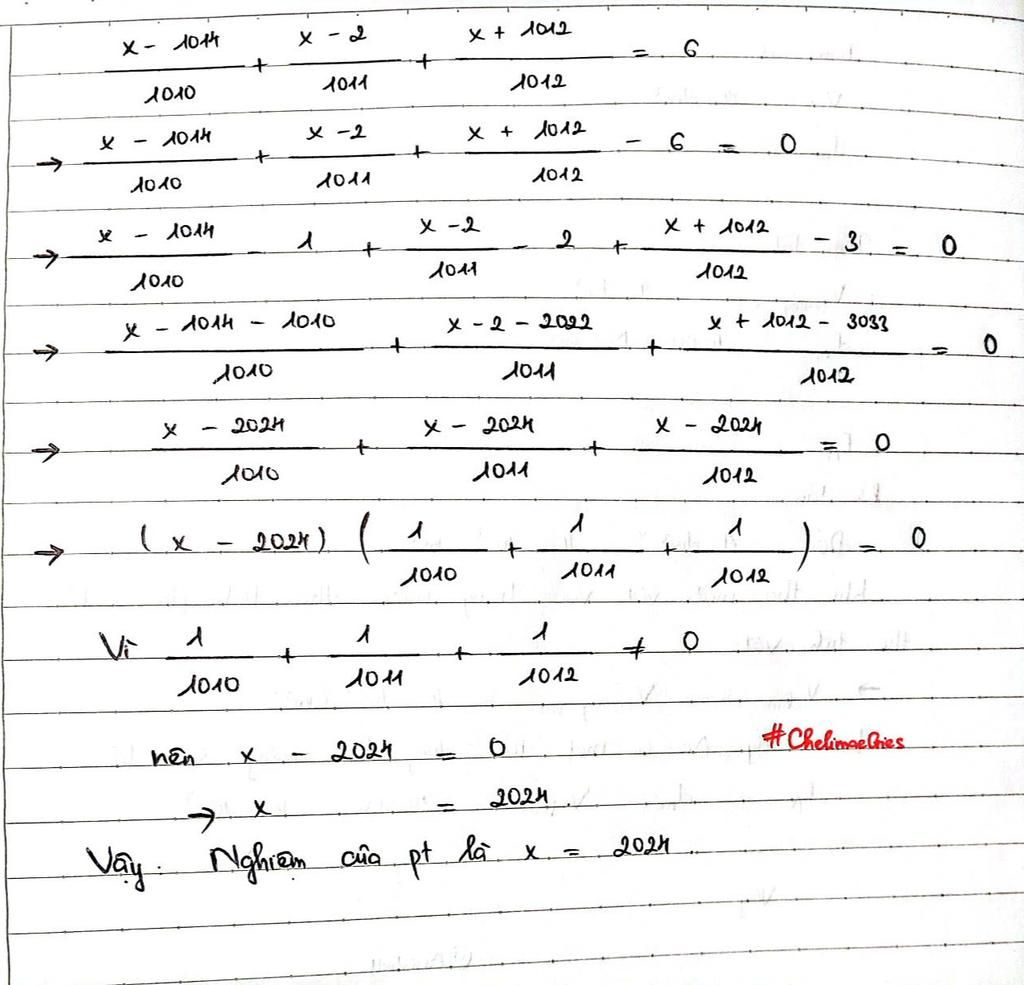 x - 1014 / 1010 + x - 2 / 1011 + x + 1012 / 1012 = 6
→ x - 1014 / 1010 + x - 2 / 1011 + x + 1012 / 1012 - 6 = 0
→ x - 1014 / 1010 - 1 + x - 2 / 1011 - 2 + x + 1012 / 1012 - 3 = 0
→ x - 1014 - 1010 / 1010 + x - 2 - 2022 / 1011 + x + 1012 - 3033 / 1012 = 0
→ x - 2024 / 1010 + x - 2024 / 1011 + x - 2024 / 1012 = 0
→ (x - 2024) (1 / 1010 + 1 / 1011 + 1 / 1012) = 0
Vì 1 / 1010 + 1 / 1011 + 1 / 1012 ≠ 0
nên x - 2024 = 0
#ChelimaeAries
→ x = 2024.
Vậy. Nghiệm của pt là x = 2024